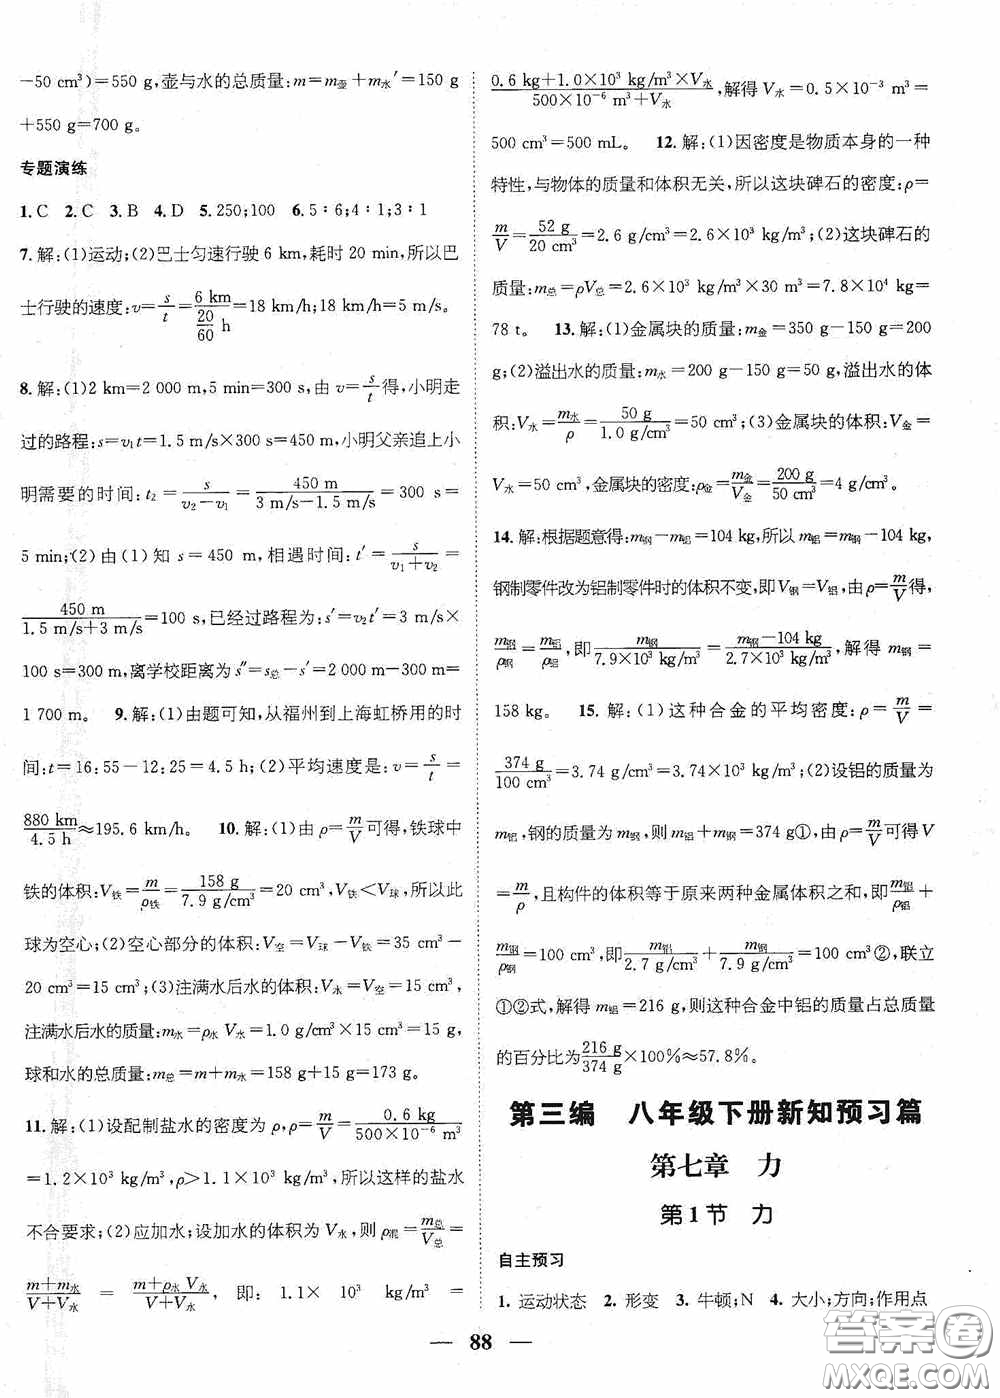 －50 cm³)＝550 g,壶与水的总质量:m＝m壶＋m水′＝150 g
＋550 g＝700 g。
专题演练
1.C　2.C　3.B　4.D　5.250;100　6.5∶6;4∶1;3∶1
7.解:(1)运动;(2)巴士匀速行驶 6 km,耗时 20 min,所以巴
士行驶的速度:v＝s/t＝6 km/(20/60 h)＝18 km/h;18 km/h＝5 m/s。
8.解:(1)2 km＝2 000 m,5 min＝300 s,由 v＝s/t得,小明走
过的路程:s＝v₁t＝1.5 m/s×300 s＝450 m,小明父亲追上小
明需要的时间:t₂＝s/(v₂－v₁)＝450 m/(3 m/s－1.5 m/s)＝300 s＝
5 min;(2)由(1)知 s＝450 m,相遇时间:t′＝s/(v₁＋v₂)＝
450 m/(1.5 m/s＋3 m/s)＝100 s,已经过路程为:s′＝v₂t′＝3 m/s×
100 s＝300 m,离学校距离为 s″＝s总－s′＝2 000 m－300 m＝
1 700 m。　9.解:(1)由题可知,从福州到上海虹桥用的时
间:t＝16:55－12:25＝4.5 h;(2)平均速度是:v＝s/t＝
880 km/4.5 h≈195.6 km/h。　10.解:(1)由 ρ＝m/V可得,铁球中
铁的体积:V铁＝m/ρ铁＝158 g/7.9 g/cm³＝20 cm³,V铁＜V球,所以此
球为空心;(2)空心部分的体积:V空＝V球－V铁＝35 cm³－
20 cm³＝15 cm³;(3)注满水后水的体积:V水＝V空＝15 cm³,
注满水后水的质量:m水＝ρ水V水＝1.0 g/cm³×15 cm³＝15 g,
球和水的总质量:m总＝m＋m水＝158 g＋15 g＝173 g。
11.解:(1)设配制盐水的密度为 ρ,ρ＝m/V＝0.6 kg/(500×10⁻⁶ m³)
＝1.2×10³ kg/m³,ρ＞1.1×10³ kg/m³,所以这样的盐水
不合要求;(2)应加水;设加水的体积为 V水,则 ρ混＝m总/V总＝
(m＋m水)/(V＋V水)＝(m＋ρ水V水)/(V＋V水),即:1.1×10³ kg/m³＝
(0.6 kg＋1.0×10³ kg/m³×V水)/(500×10⁻⁶ m³＋V水),解得 V水＝0.5×10⁻³ m³＝
500 cm³＝500 mL。　12.解:(1)因密度是物质本身的一种
特性,与物体的质量和体积无关,所以这块碑石的密度:ρ＝
m/V＝52 g/20 cm³＝2.6 g/cm³＝2.6×10³ kg/m³;(2)这块碑石的
质量:m总＝ρV总＝2.6×10³ kg/m³×30 m³＝7.8×10⁴ kg＝
78 t。　13.解:(1)金属块的质量:m金＝350 g－150 g＝200
g;(2)溢出水的质量:m水＝200 g－150 g＝50 g,溢出水的体
积:V水＝m水/ρ＝50 g/1.0 g/cm³＝50 cm³;(3)金属块的体积:V金＝
V水＝50 cm³,金属块的密度:ρ金＝m金/V金＝200 g/50 cm³＝4 g/cm³。
14.解:根据题意得:m钢－m铝＝104 kg,所以 m铝＝m钢－104 kg,
钢制零件改为铝制零件时的体积不变,即V钢＝V铝,由ρ＝m/V得,
m钢/ρ钢＝m铝/ρ铝,即m钢/(7.9×10³ kg/m³)＝(m钢－104 kg)/(2.7×10³ kg/m³),解得 m钢＝
158 kg。　15.解:(1)这种合金的平均密度:ρ＝m/V＝
374 g/100 cm³＝3.74 g/cm³＝3.74×10³ kg/m³;(2)设铝的质量为
m铝,钢的质量为 m钢,则 m铝＋m钢＝374 g①,由ρ＝m/V可得 V
＝m/ρ,且构件的体积等于原来两种金属体积之和,即m铝/ρ铝＋
m钢/ρ钢＝100 cm³,即m铝/2.7 g/cm³＋m钢/7.9 g/cm³＝100 cm³②,联立
①②式,解得 m铝＝216 g,则这种合金中铝的质量占总质量
的百分比为216 g/374 g×100%≈57.8%。
第三编　八年级下册新知预习篇
第七章　力
第1节　力
自主预习
1. 运动状态　2. 形变　3. 牛顿;N　4. 大小;方向;作用点
— 88 —
答案卷
MXQE.COM